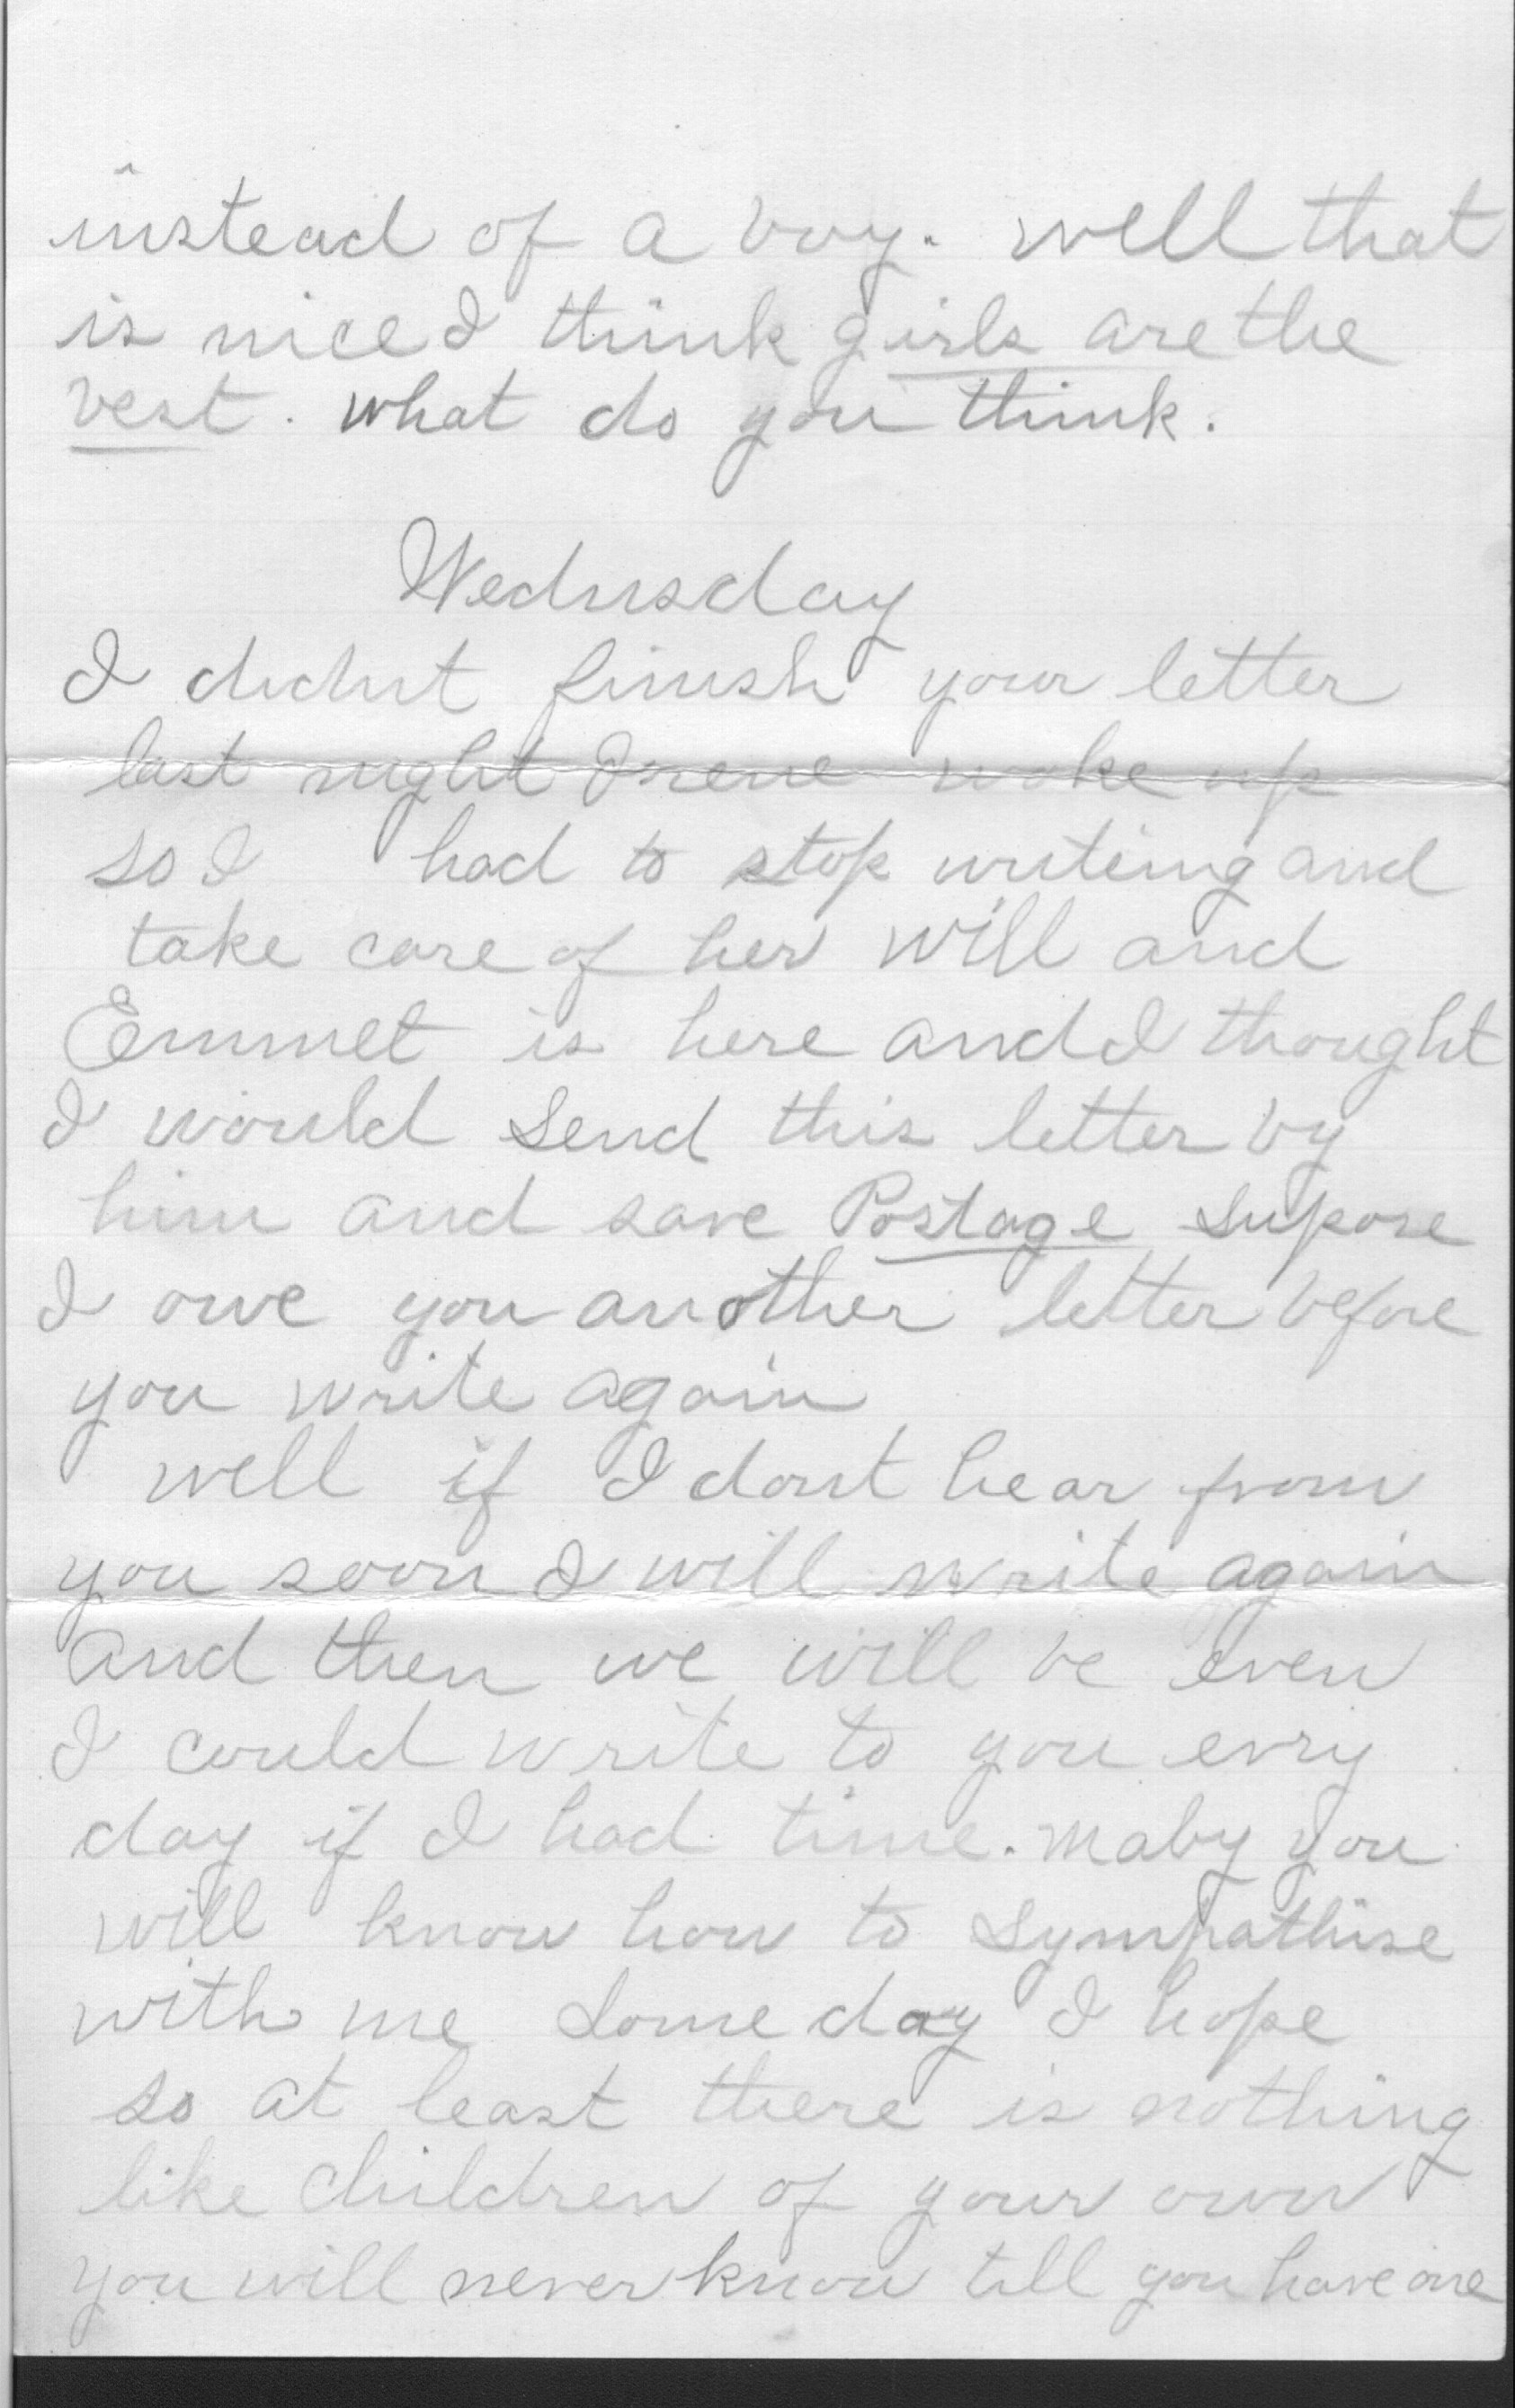 instead of a boy. well that
is nice I think girls are the
best. what do you think.
Wednsday
I didnt finish your letter
last night Irene woke up
so I had to stop writing and
take care of her will and
Emmet is here and I thought
I would send this letter by
him and save Postage supose
I owe you another letter before
you write again
well if I dont hear from
you soon I will write again
and then we will be even
I could write to you evry
day if I had time. maby you
will know how to sympathise
with me some day I hope
so at least there is nothing
like children of your own
you will never know till you have one